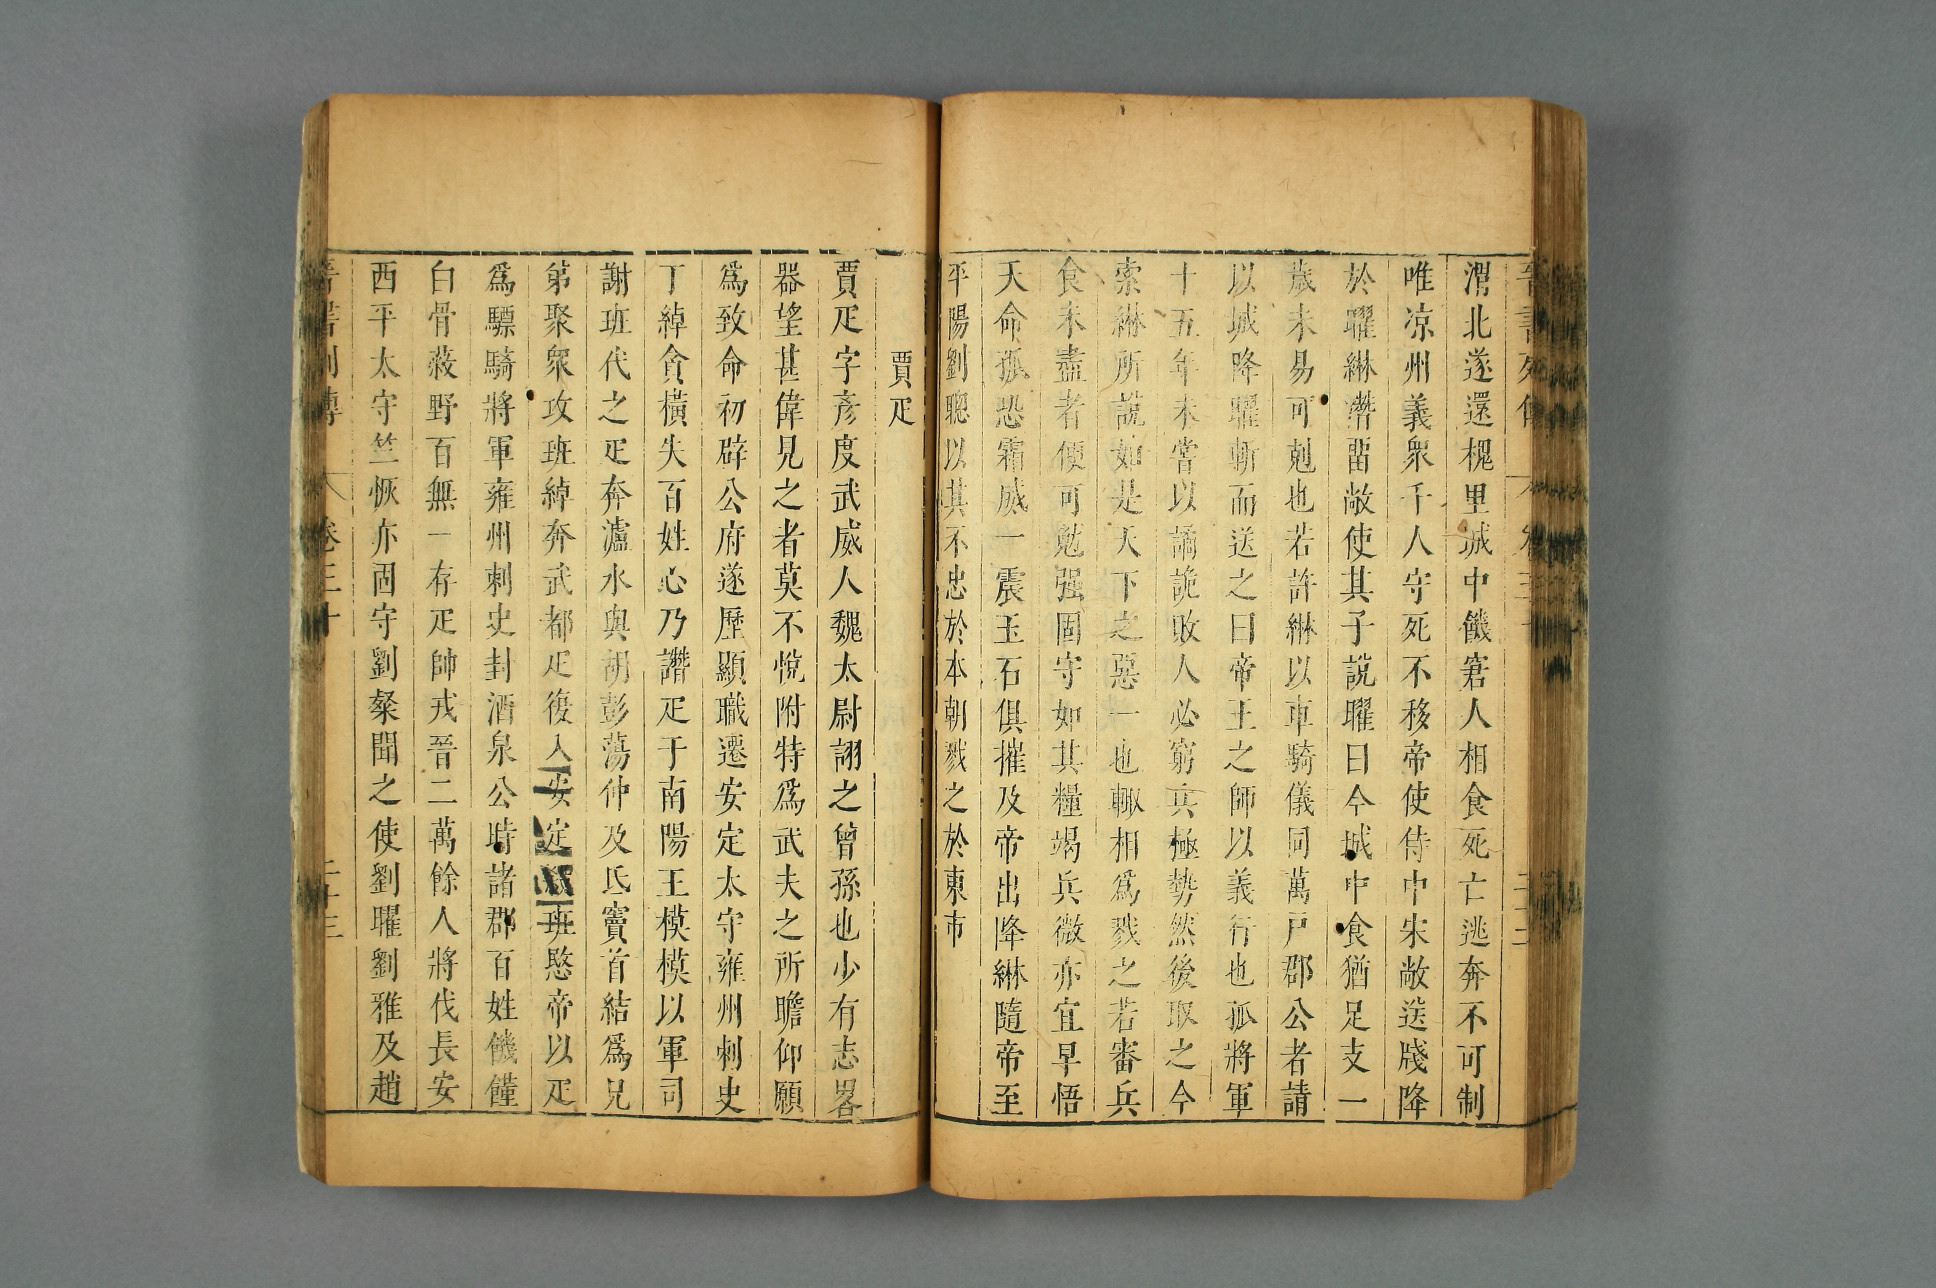 渭北遂還槐里城中饑窘人相食死亡逃奔不可制
唯凉州義衆千人守死不移帝使侍中宋敞送牋降
於曜綝潛留敞使其子說曜曰今城中食猶足支一
歲未易可剋也若許綝以車騎儀同萬戸郡公者請
以城降曜斬而送之曰帝王之師以義行也孤將軍
十五年未嘗以譎詭敗人必窮兵極勢然後取之今
索綝所說如是天下之惡一也輙相爲戮之若審兵
食未盡者便可勉强固守如其糧竭兵微亦宜早悟
天命孤恐霜威一震玉石俱摧及帝出降綝隨帝至
平陽劉聰以其不忠於本朝戮之於東市
賈疋
賈疋字彥度武威人魏太尉詡之曾孫也少有志畧
器望甚偉見之者莫不悅附特爲武夫之所瞻仰願
爲致命初辟公府遂歷顯職遷安定太守雍州刺史
丁綽貪橫失百姓心乃譖疋于南陽王模模以軍司
謝班代之疋奔瀘水與胡彭蕩仲及氐竇首結爲兄
弟聚衆攻班綽奔武都疋復入安定班愍帝以疋
爲驃騎將軍雍州刺史封酒泉公時諸郡百姓饑饉
白骨蔽野百無一存疋帥戎晉二萬餘人將伐長安
西平太守竺恢亦固守劉粲聞之使劉曜劉雅及趙
晉書列傳 卷三十 二十三